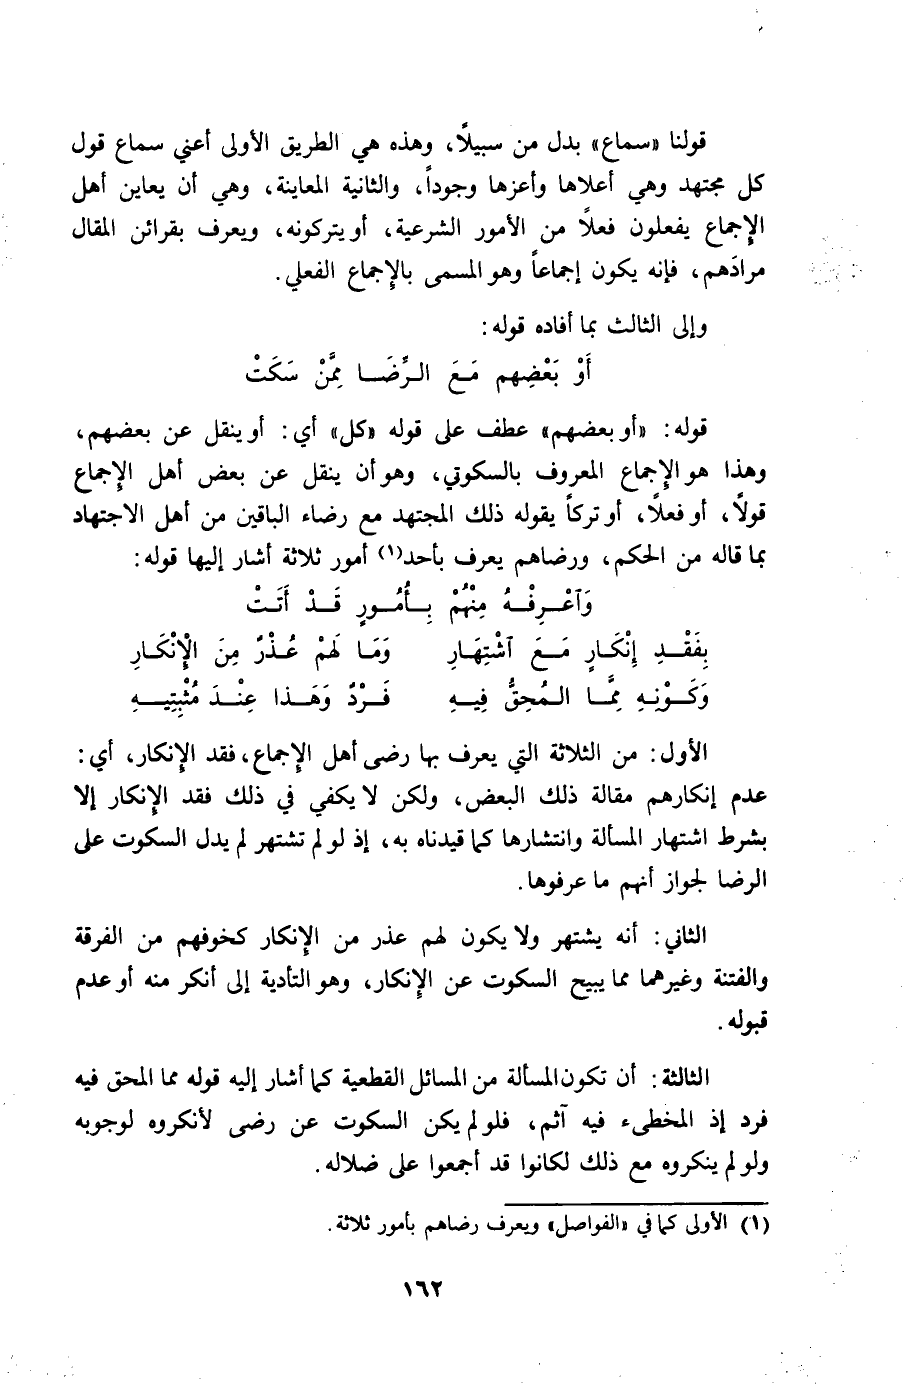 قولنا «سماع» بدل من سبيلاً، وهذه هي الطريق الأولى أعني سماع قول
كل مجتهد وهي أعلاها وأعزها وجوداً، والثانية المعاينة، وهي أن يعاين أهل
الإجماع يفعلون فعلاً من الأمور الشرعية، أو يتركونه، ويعرف بقرائن المقال
مرادَهم، فإنه يكون إجماعاً وهو المسمى بالإجماع الفعلي.
وإلى الثالث بما أفاده قوله:
أَوْ بَعْضِهِم مَعَ الرِّضَا مِمَّنْ سَكَتْ
قوله: «أو بعضهم» عطف على قوله «كل» أي: أو ينقل عن بعضهم،
وهذا هو الإجماع المعروف بالسكوتي، وهو أن ينقل عن بعض أهل الإجماع
قولاً، أو فعلاً، أو تركاً يقوله ذلك المجتهد مع رضاء الباقين من أهل الاجتهاد
بما قاله من الحكم، ورضاهم يعرف بأحد(١) أمور ثلاثة أشار إليها قوله:
وَآعْرِفْهُ مِنْهُمْ بِأُمُورٍ قَدْ أَتَتْ
بِفَقْدِ إِنْكَارٍ مَعَ آشْتِهَارِ وَمَا لَهُمْ عُذْرٌ مِنَ الْإِنْكَارِ
وَكَوْنِهِ مِمَّا المُحِقُّ فِيهِ فَرْدٌ وَهَذا عِنْدَ مُثْبِتِيهِ
الأول: من الثلاثة التي يعرف بها رضى أهل الإجماع، فقد الإنكار، أي:
عدم إنكارهم مقالة ذلك البعض، ولكن لا يكفي في ذلك فقد الإنكار إلا
بشرط اشتهار المسألة وانتشارها كما قيدناه به، إذ لو لم تشتهر لم يدل السكوت على
الرضا لجواز أنهم ما عرفوها.
الثاني: أنه يشتهر ولا يكون لهم عذر من الإنكار كخوفهم من الفرقة
والفتنة وغيرهما مما يبيح السكوت عن الإنكار، وهو التأدية إلى أنكر منه أو عدم
قبوله.
الثالثة: أن تكون المسألة من المسائل القطعية كما أشار إليه قوله مما المحق فيه
فرد إذ المخطىء فيه آثم، فلو لم يكن السكوت عن رضى لأنكروه لوجوبه
ولو لم ينكروه مع ذلك لكانوا قد أجمعوا على ضلاله.
(١) الأولى كما في «الفواصل» ويعرف رضاهم بأمور ثلاثة.
١٦٢